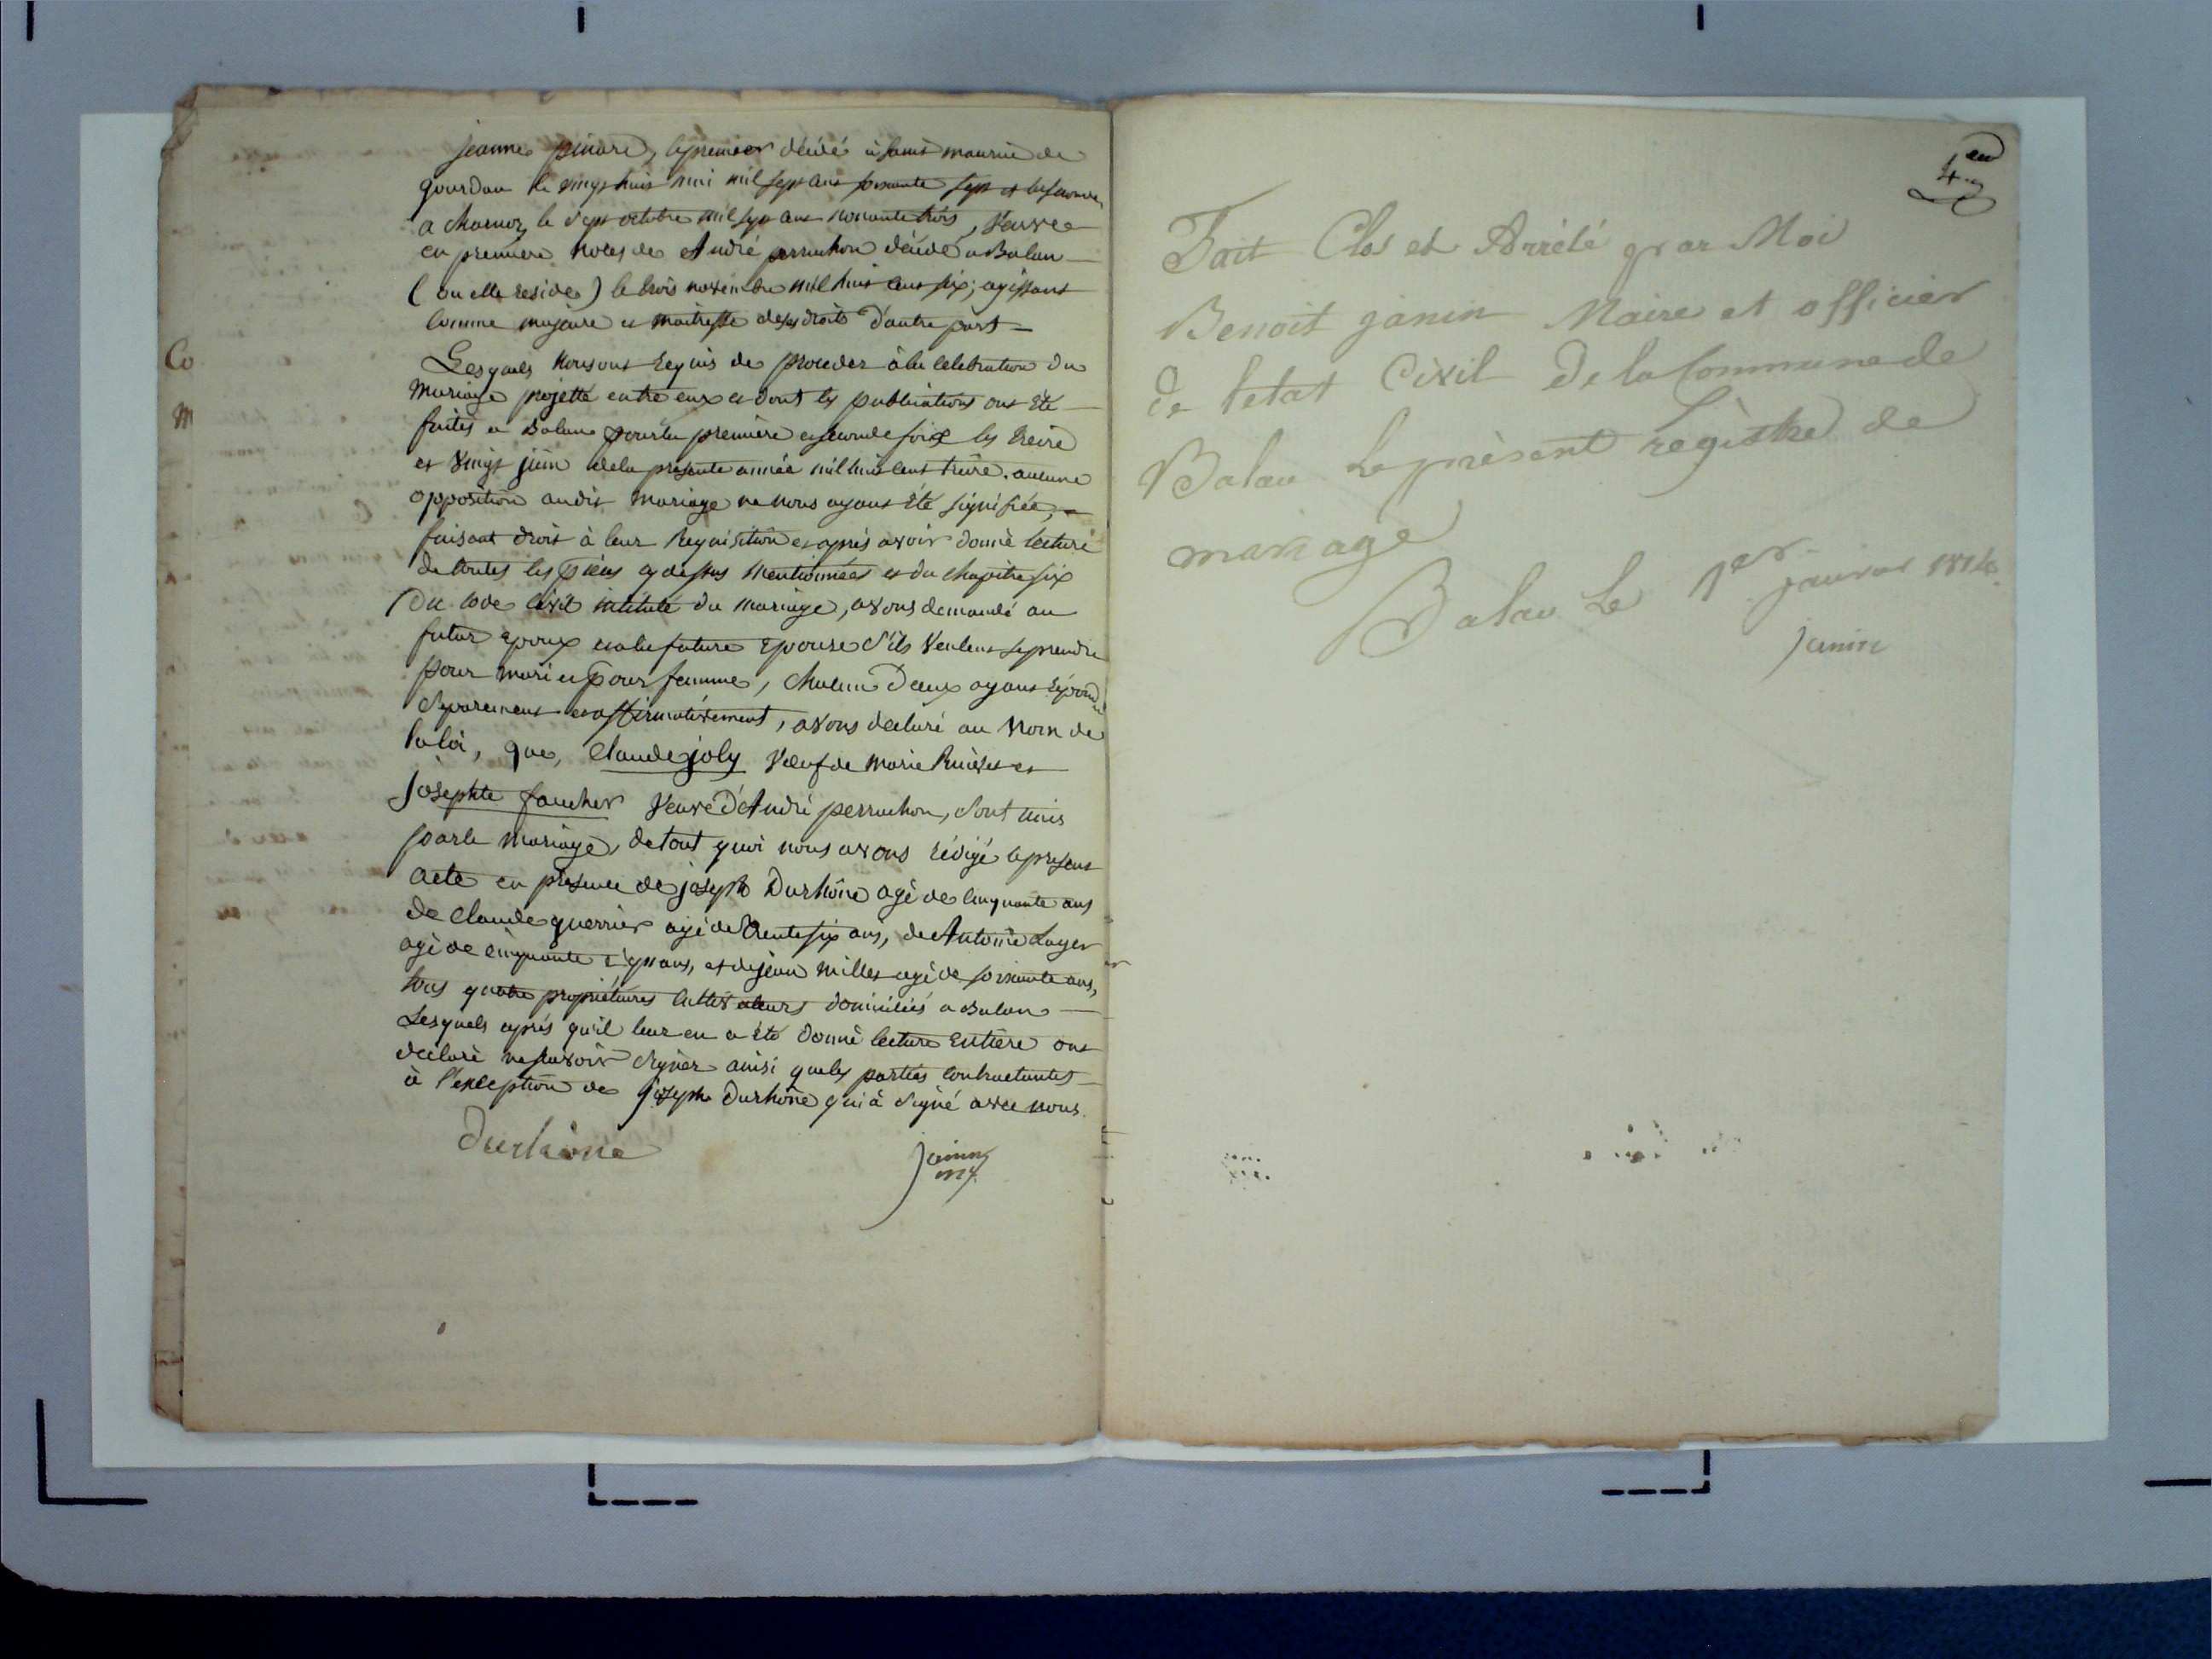 jeanne pinard, le premier décédé à saint maurice de
gourdan le vingt huit mai mil sept cent soixante sept et la seconde
a charnoz le sept octobre mil sept cent nonante trois, Veuve
en premiere noces de André perruchon décédé a Balan
(ou elle reside) le trois novembre mil huit cent six; agissant
comme majeure et maitresse de ses droits d'autre part
Lesquels nous ont requis de proceder à la celebration du
mariage projetté entre eux et dont les publications ont été
faites a Balan pour la première et seconde foix les treize
et vingt juin de la presente année mil huit cent treize. aucune
opposition audit mariage ne nous ayant été signifiée,
faisant droit à leur Requisition et après avoir donnè lecture
de toutes les pieces cy dessus mentionnées et du chapitre six
Du code Civil intitulé du mariage, avons demandé au
futur epoux et a la future Epouse S'ils veulent se prendre
pour mari et pour femme, chacun d'eux ayant répondu
separement et affirmativement, avons declaré au nom de
la loi, que, Claude joly Veuf de Marie et
josephte faucher Veuve d'André perruchon, sont unis
par le mariage, de tout quoi nous avons rédigé le present
acte en presence de joseph Durhône agé de cinquante ans
de Claude guerrier agé de trente six ans, de Antoine Loyer
agé de cinquante sept ans, et de jean milles agé de soixante ans,
tous quatre propriétaires cultivateurs domiciliés a Balan
Lesquels après qu'il leur en a été donné lecture entière ont
declaré ne savoir signer ainsi que les parties contractantes
à l'exception de joseph Durhône qui à signé avec nous.
Durhône
janin
my.
Co
M
4
Fait Clos et Arrété par Moi
Benoit janin Maire et officier
de letat Civil De la Commune de
Balan Le présent registre de
mariage
Balan Le 1er janvier 1814
janin